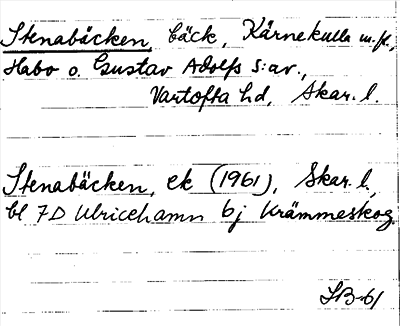 Stenabäcken, bäck, Kärnekulla m.fl.,
Habo o. Gustav Adolfs s:ar.,
Vartofta hd, Skar. l.
Stenabäcken, ek (1961), Skar. l.,
bl 7D Ulricehamn bj Krämmeskog
SB-61